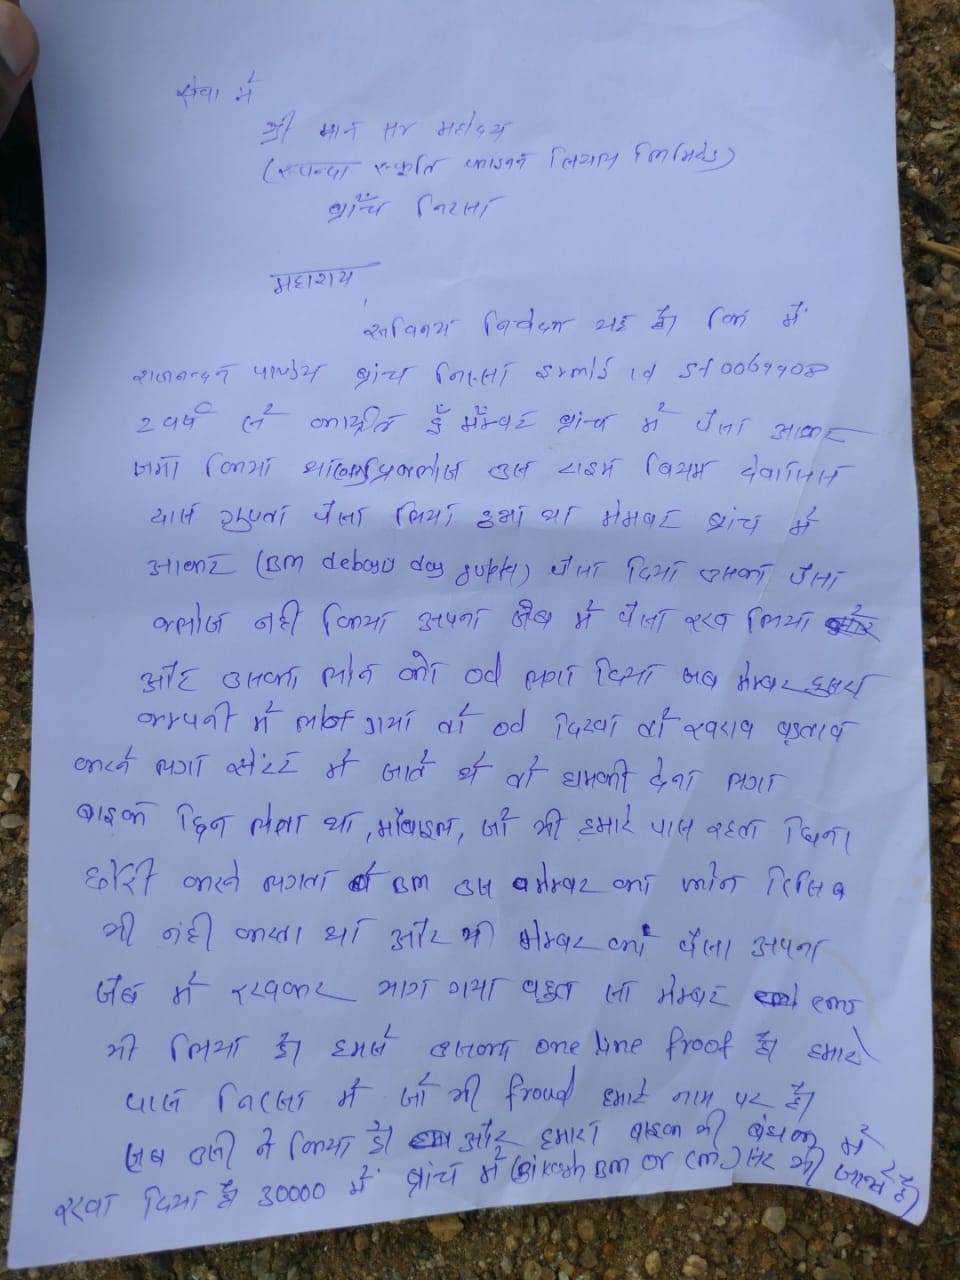 सेवा में
श्री मान सर महोदय
(स्पन्दना स्फूर्ति फाइनेंसियल लिमिटेड)
ब्राँच निरसा
महाशय
सविनय निवेदन यह है। कि मैं
राजनन्दन पाण्डेय ब्रांच निरसा
2 वर्ष से कार्यरत हूँ मेम्बर ब्रांच में पैसा आकर
जमा किया था प्रिक्लोज उस टाइम बियम देवासिस
दास गुप्ता पैसा लिया हुआ था मेमबर ब्रांच में
आकर (BM debasis das gupta) पैसा दिया उसका पैसा
क्लोज नही किया अपना जेब में पैसा रख लिया
और उसका लोन को od लगा दिया जब मेम्बर दुसरा
कम्पनी में लोन गया तो od दिखा तो खराब बर्ताव
करने लगा सेंटर में जाते थे तो धमकी देना लगा
बाइक छिन लेता था, मोबाइल, जो भी हमारे पास रहता छिना
छोरी करने लगता BM उस मेम्बर का फोन रिसिव
भी नही करता था और भी मेम्बर का पैसा अपना
जेब में रखकर भाग गया बहुत सा मेम्बर
भी लिया है। हमसे उसका one line Proof है। हमारे
पास निरसा में जो भी froud हमारे नाम पर है।
सब उसी ने किया है। और हमारा बाइक भी बंधक में
रखा दिया है 30000 में ब्रांच में (Bikash BM or CM) सर भी जानते है।